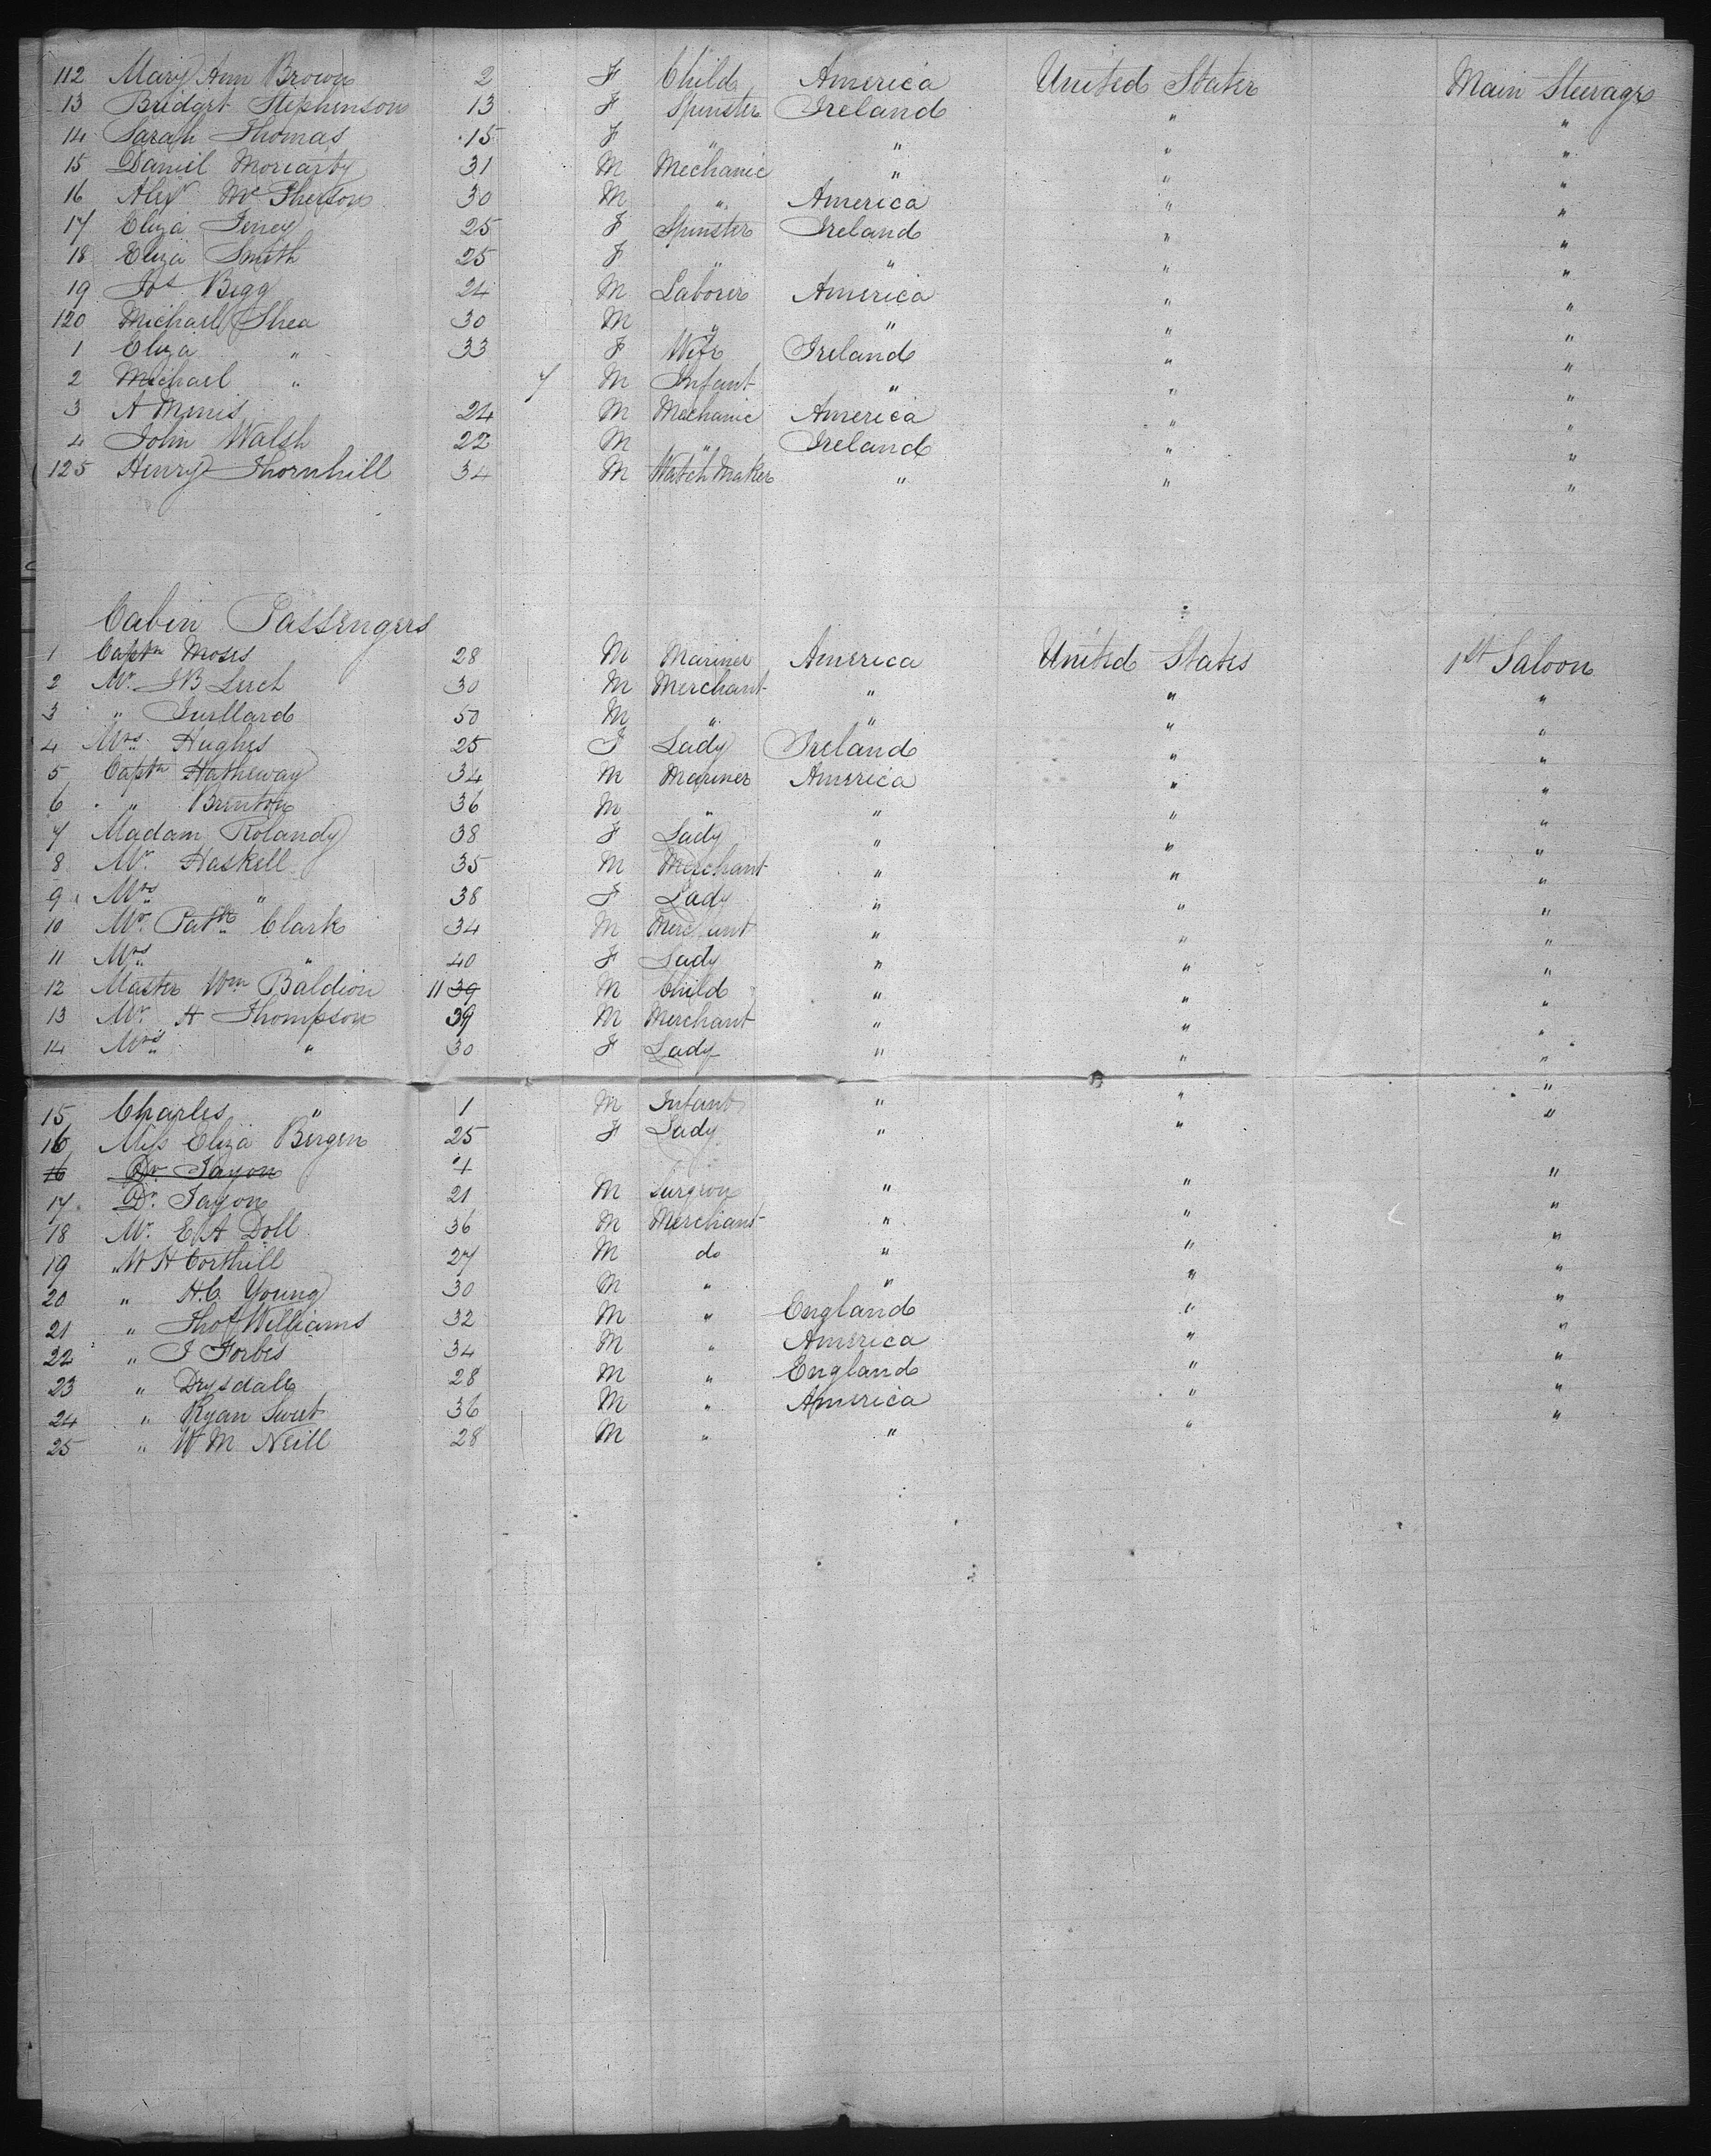 112 Mary Ann Brown 2 F Child America United States Main Steerage
13 Bridget Stephenson 13 F Spinster Ireland " "
14 Sarah Thomas 15 F " " " "
15 Daniel Moriarty 31 M Mechanic " " "
16 Alexr 30 M " America " "
17 Eliza 25 F Spinster Ireland " "
18 Eliza Smith 25 F " " " "
19 Jos Begg 24 M Laborer America " "
120 Michael Shea 30 M " " " "
1 Eliza " 33 F Wife Ireland " "
2 Michael " 7 M Infant " " "
3 A Minis 24 M Mechanic America " "
4 John Walsh 22 M " Ireland " "
125 Henry Thornhill 34 M Watch Maker " " "
Cabin Passengers
1 Captn Moses 28 M Mariner America United States 1st Saloon
2 Mr. J B Lerch 30 M Merchant " " "
3 " 50 M " " " "
4 Mrs. Hughes 25 F Lady Ireland " "
5 Captn Hatheway 34 M Mariner America " "
6 " Brinton 36 M " " " "
7 Madam Rolandy 38 F Lady " " "
8 Mr. Haskell 35 M Merchant " " "
9 Mrs " 38 F Lady " " "
10 Mr. Patk Clark 34 M Merchant " " "
11 Mrs " 40 F Lady " " "
12 Master Wm Baldion 11 39 M Child " " "
13 Mr. A Thompson 39 M Merchant " " "
14 Mrs " 30 F Lady " " "
15 Charles " 1 M Infant " " "
16 Miss Eliza Bergen 25 F Lady " " "
16 Dr. Jayon
17 Dr. Jayon 21 M Surgeon " " "
18 Mr. E A Doll 36 M Merchant " " "
19 " W H Corthill 27 M do " " "
20 " H. C. Young 30 M " " " "
21 " Thos Williams 32 M " England " "
22 " J Forbes 34 M " America " "
23 " Drysdale 28 M " England " "
24 " Ryan Sweet 36 M " America " "
25 " W M Neill 28 M " " " "